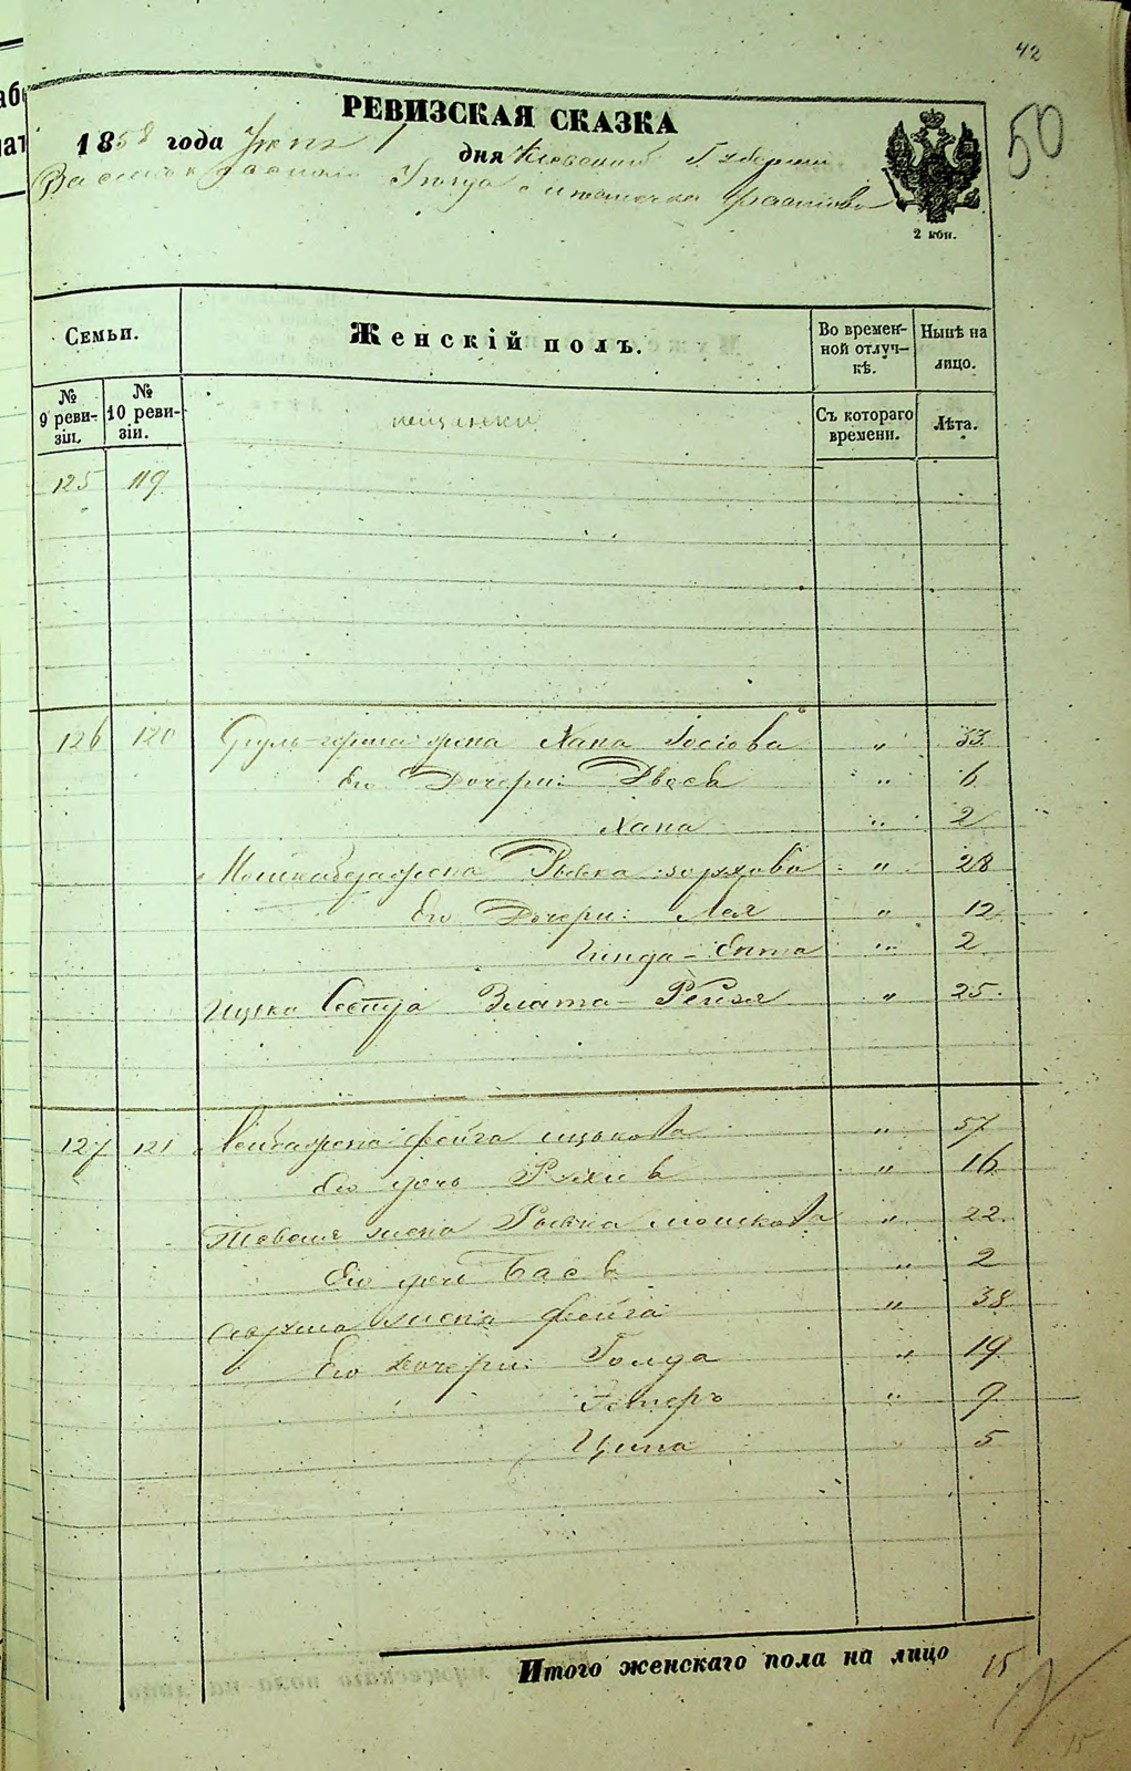 42
50
РЕВИЗСКАЯ СКАЗКА
1858 года Июня 1 дня Киевской Губернии
Васильковскаго Уѣзда местечка Фастова
2 коп.
Семьи.
Женскій полъ.
Во времен-
ной отлуч-
кѣ.
Нынѣ на
лицо.
№
9 реви-
зіи.
№
10 реви-
зіи.
мещанки
Съ котораго
времени.
Лѣта.
125 119
126 120 жена Хана Іосіова " 33
Его Дочери: Двося " 6
Хана " 2
жена Рывка " 28
Его Дочери: Лея " 12
Гинда - Ента " 2
Ицка Сестра Злата - Рейзя " 25
127 121 Лейба жена Фейга Ицькова " 57
Его дочь Рухля " 16
жена Рывка Мошкова " 22
Его дочь Бася " 2
жена Фейга " 38
Его Дочери: Голда " 19
Эстеръ " 9
Ципа " 5
Итого женскаго пола на лицо 15
15